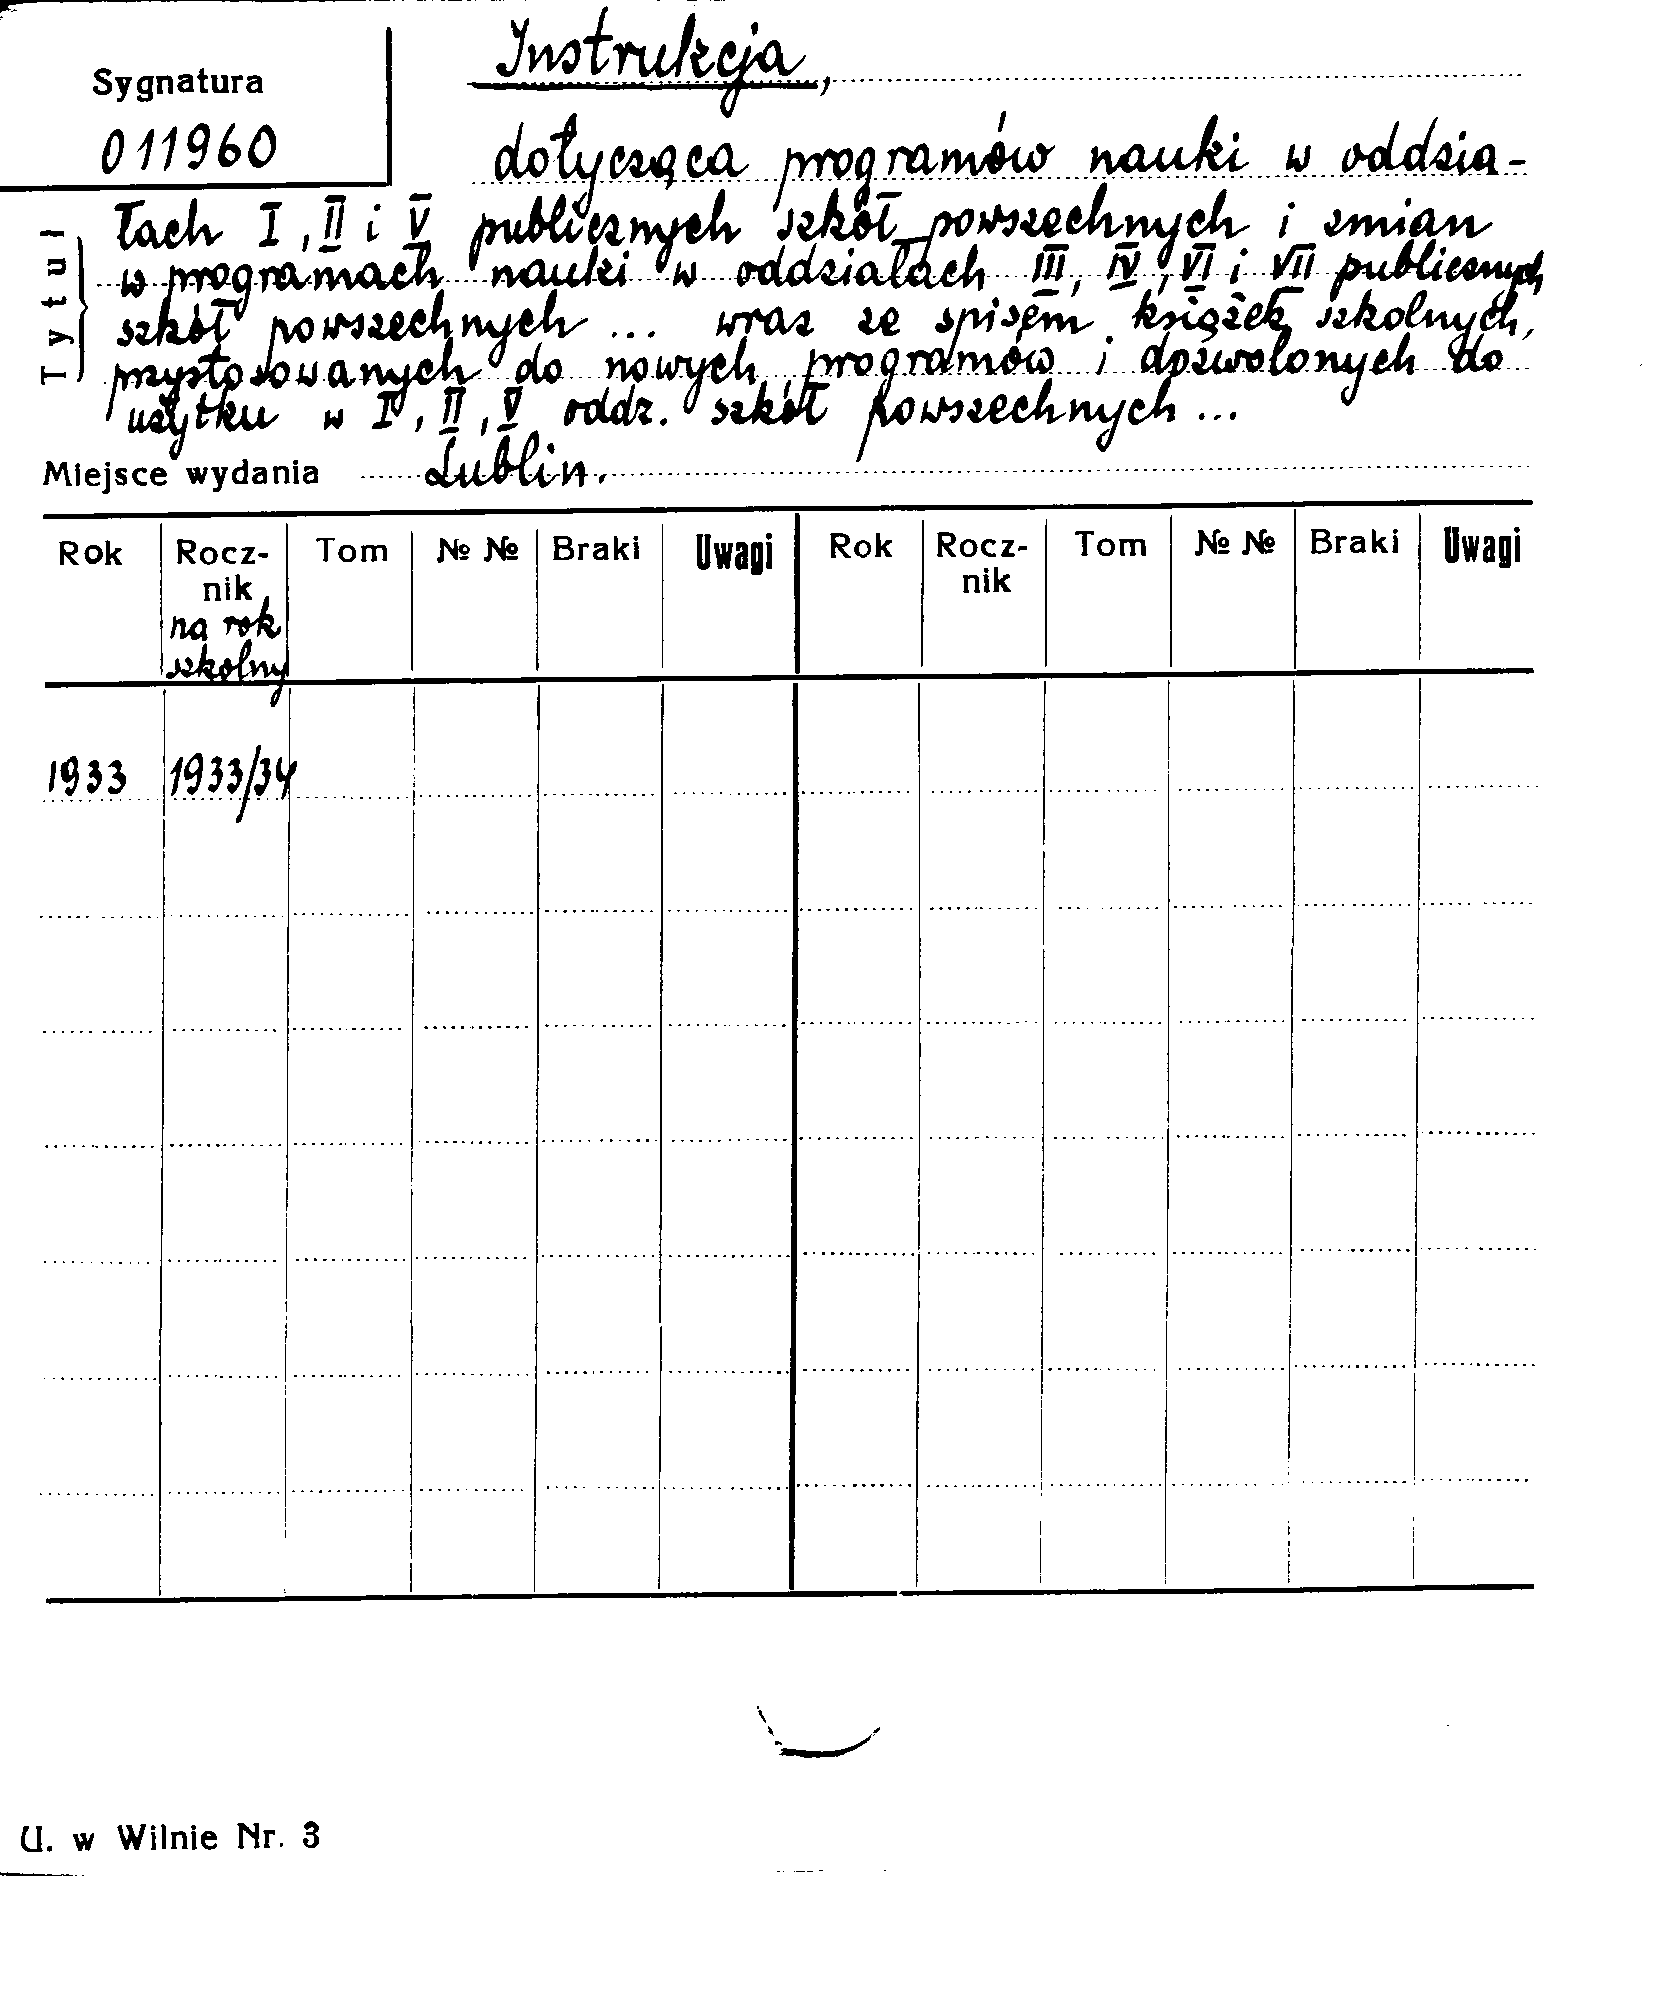 Sygnatura
011960
Instrukcja,
dotycząca programów nauki w oddzia-
łach I, II i V publicznych szkół powszechnych i zmian
w programach nauki w oddziałach III, IV, VI i VII publicznych
szkół powszechnych ... wraz ze spisem książek szkolnych,
przystosowanych do nowych programów i dozwolonych do
użytku w I, II, V oddz. szkół powszechnych ...
Tytuł
Miejsce wydania Lublin.
Rok Rocz- Tom № № Braki Uwagi Rok Rocz- Tom № № Braki Uwagi
nik nik
na rok
szkolny
1933 1933/34
U. w Wilnie Nr. 3